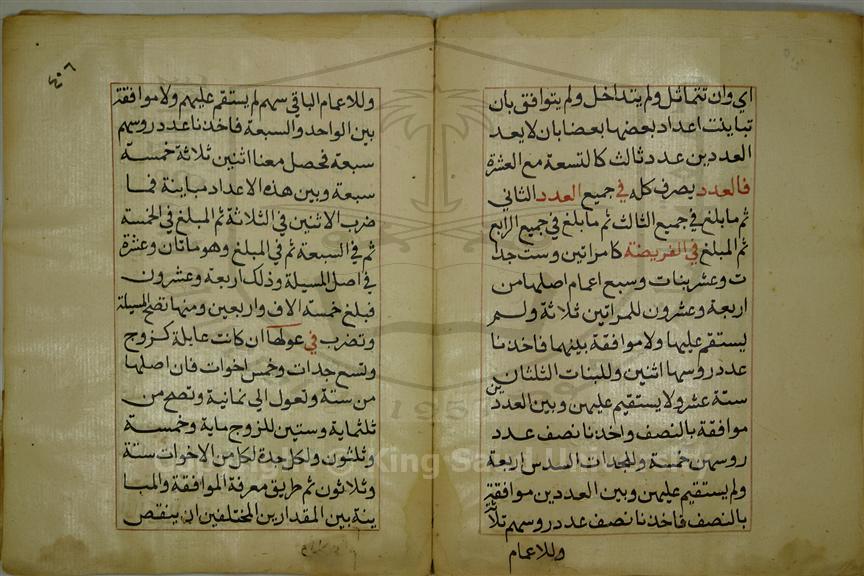 اي وان تتماثل ولم يتداخل ولم يتوافق بان
تباينت اعداد بعضها بعضا بان لا يعد
العددين عدد ثالث كالتسعة مع العشرة
فالعدد يصرف كله في جميع العدد الثاني
ثم ما بلغ في جميع الثالث ثم ما بلغ في جميع الرابع
ثم المبلغ في الفريضة كامراتين وست جدا
ت وعشر بنات وسبع اعمام اصلها من
اربعة وعشرون للمراتين ثلاثة ولم
يستقم عليها ولا موافقة بينهما فاخذنا
عدد روسها اثنين وللبنات الثلثان
ستة عشر ولا يستقيم عليهن وبين العددين
موافقة بالنصف واخذنا نصف عدد
روسهن خمسة وللجدات السدس اربعة
ولم يستقيم عليهن وبين العددين موافقة
بالنصف فاخذنا نصف عدد روسهم ثلاثة
وللاعمام
وللاعمام الباقي سهم لم يستقم عليهم ولا موافقة
بين الواحد والسبعة فاخذنا عدد روسهم
سبعة فحصل معنا اثنين ثلاثة خمسة
سبعة وبين هذه الاعداد مباينة فما
ضرب الاثنين في الثلاثة ثم المبلغ في الخمسة
ثم في السبعة ثم في المبلغ وهو ماتان وعشرة
في اصل المسيلة وذلك اربعة وعشرون
فبلغ خمسة الاف واربعين ومنها تصح المسيلة
وتضرب في عولها ان كانت عايلة كزوج
وتسع جدات وخمس اخوات فان اصلها
من ستة وتعول الى ثمانية وتصح من
ثلثماية وستين للزوج ماية وخمسة
وثلثون ولكل جدة لكل من الاخوات ستة
وثلاثون ثم طريق معرفة الموافقة والمبا
ينة بين المقدارين المختلفين ان ينقص
King Saud University
1957